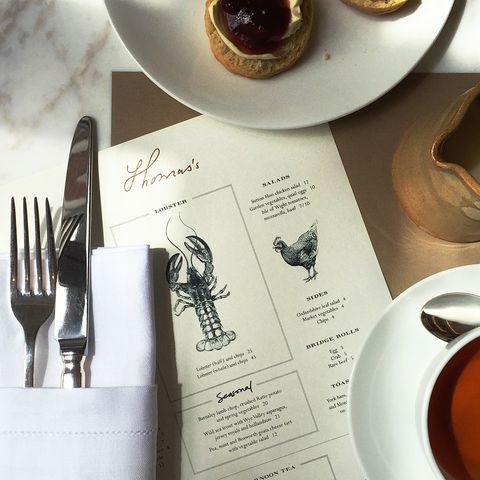 Thomas's
LOBSTER
Lobster (half) and chips 25
Lobster (whole) and chips 45
Seasonal
Barnsley lamb chop, crushed Ratty potato
and spring vegetables 20
Wild sea trout with Wye Valley asparagus,
jersey royals and hollandaise 21
Pea, mint and Bosworth goats cheese tart
with vegetable salad 12
SALADS
Sutton Hoo chicken salad 12
Garden vegetables, quail eggs 10
Isle of Wight tomatoes,
mozzarella, basil 7/10
SIDES
Oxfordshire leaf salad 4
Market vegetables 4
Chips 4
BRIDGE ROLLS
Egg 5
Crab
Rare beef
TOAS
York ham,
and
NOON TEA